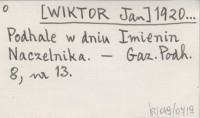 o
[WIKTOR Jan] 1920...
Podhale w dniu Imienin
Naczelnika. — Gaz. Podh.
8, nr 13.